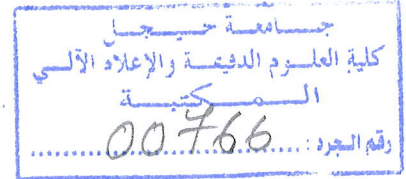 جامعة جيجل
كلية العلوم الدقيقة والإعلام الآلي
المكتبة
رقم الجرد : 00766